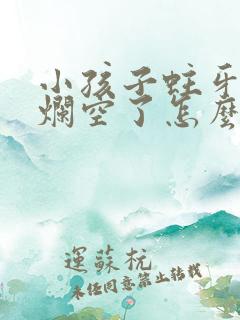 小孩子蛀牙
爛空了怎麼
運蘇杭
未经同意禁止转载